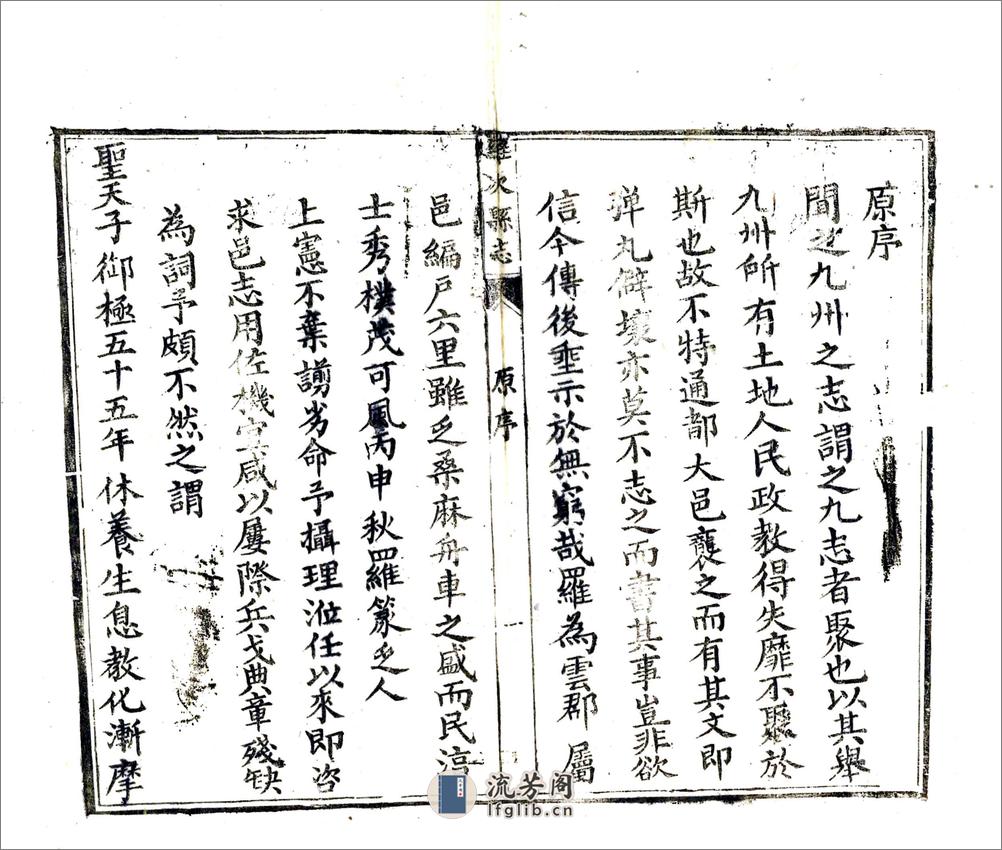 原序
聞之九州之志謂之九志者聚也以其舉
九州所有土地人民政教得失靡不聚於
斯也故不特通都大邑襲之而有其文即
弹丸僻壤亦莫不志之而書其事豈非欲
信今傳後垂示於無窮哉羅為雲郡屬
羅次縣志
原序
邑編戸六里雖乏桑麻舟車之盛而民淳
士秀樸茂可風丙申秋羅篆乏人
上憲不棄謭劣命予攝理涖任以來即咨
求邑志用佐機宜咸以屢際兵戈典章殘缺
為詞予頗不然之謂
聖天子御極五十五年休養生息教化漸摩
流芳阁
lfglib.cn